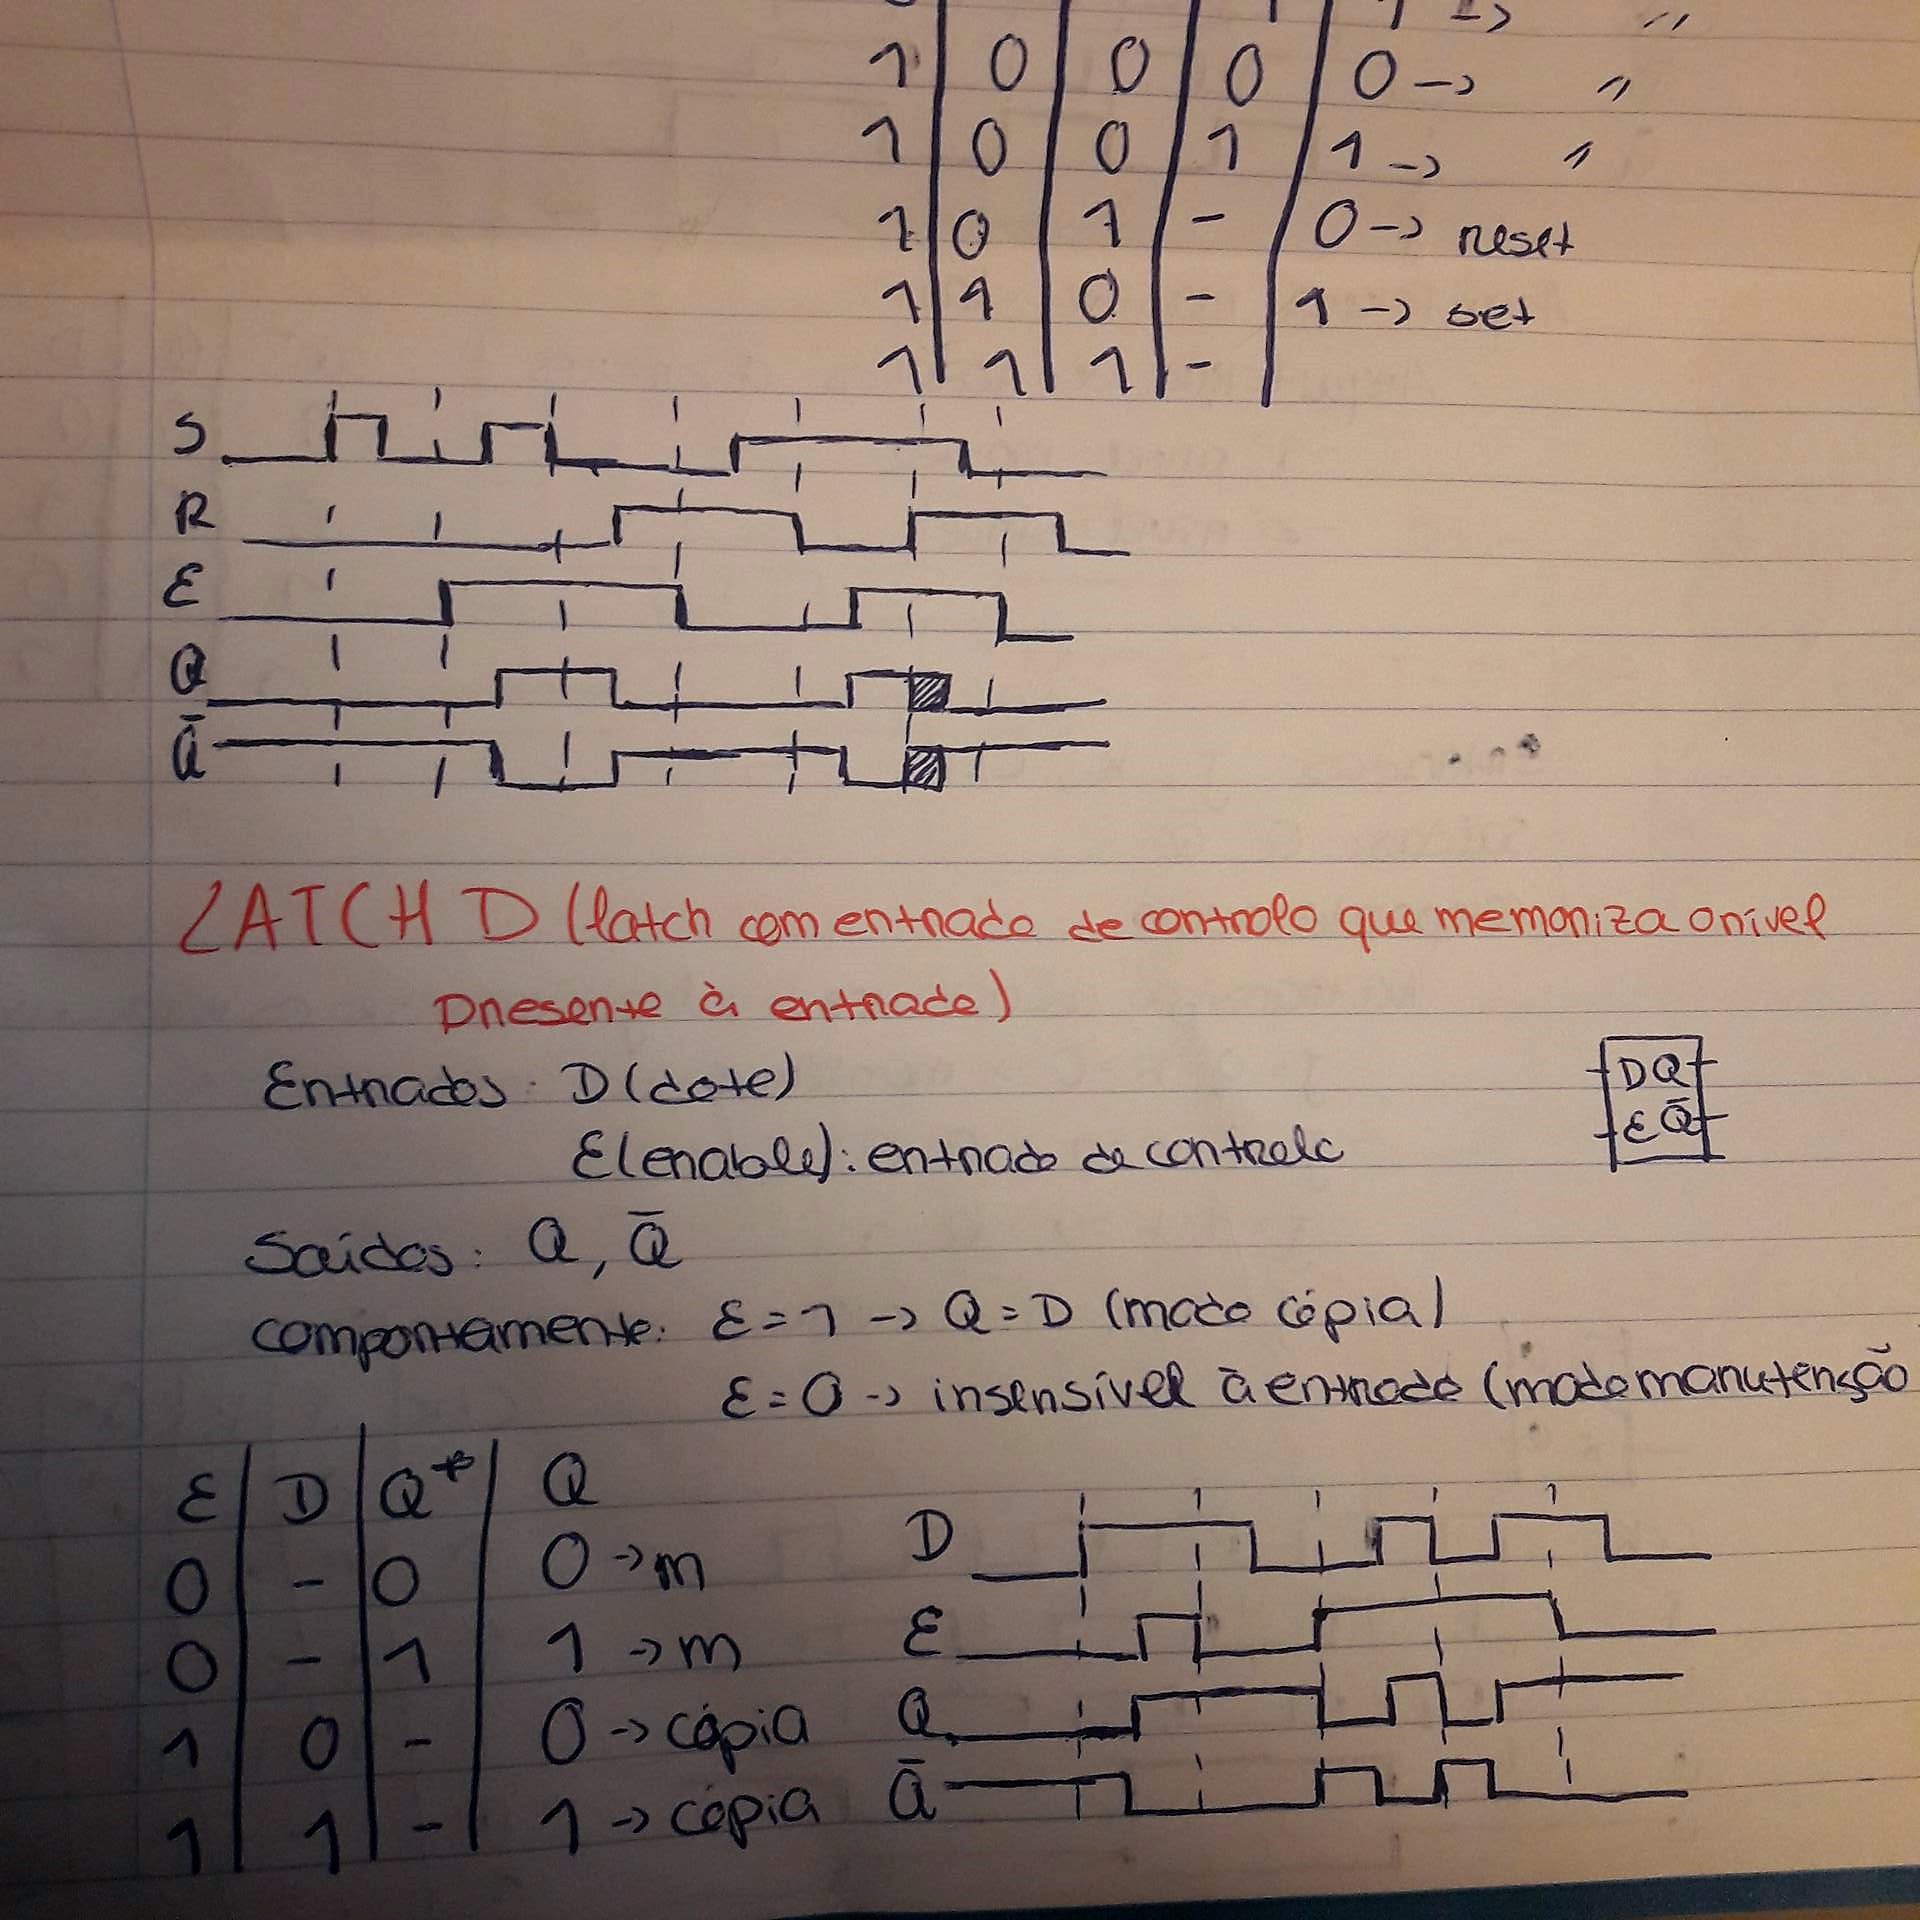 1 -> "
1 | 0 | 0 | 0 | 0 -> "
1 | 0 | 0 | 1 | 1 -> "
1 | 0 | 1 | - | 0 -> reset
1 | 1 | 0 | - | 1 -> set
1 | 1 | 1 | - |
S
R
E
Q
Q̄
LATCH D (latch com entrada de controlo que memoriza o nível
presente à entrada)
Entradas: D (data)
E (enable): entrada de controlo
D Q
E Q̄
Saídas: Q, Q̄
comportamento: E = 1 -> Q = D (modo cópia)
E = 0 -> insensível à entrada (modo manutenção
E | D | Q* | Q
0 | - | 0 | 0 -> m
0 | - | 1 | 1 -> m
1 | 0 | - | 0 -> cópia
1 | 1 | - | 1 -> cópia
D
E
Q
Q̄